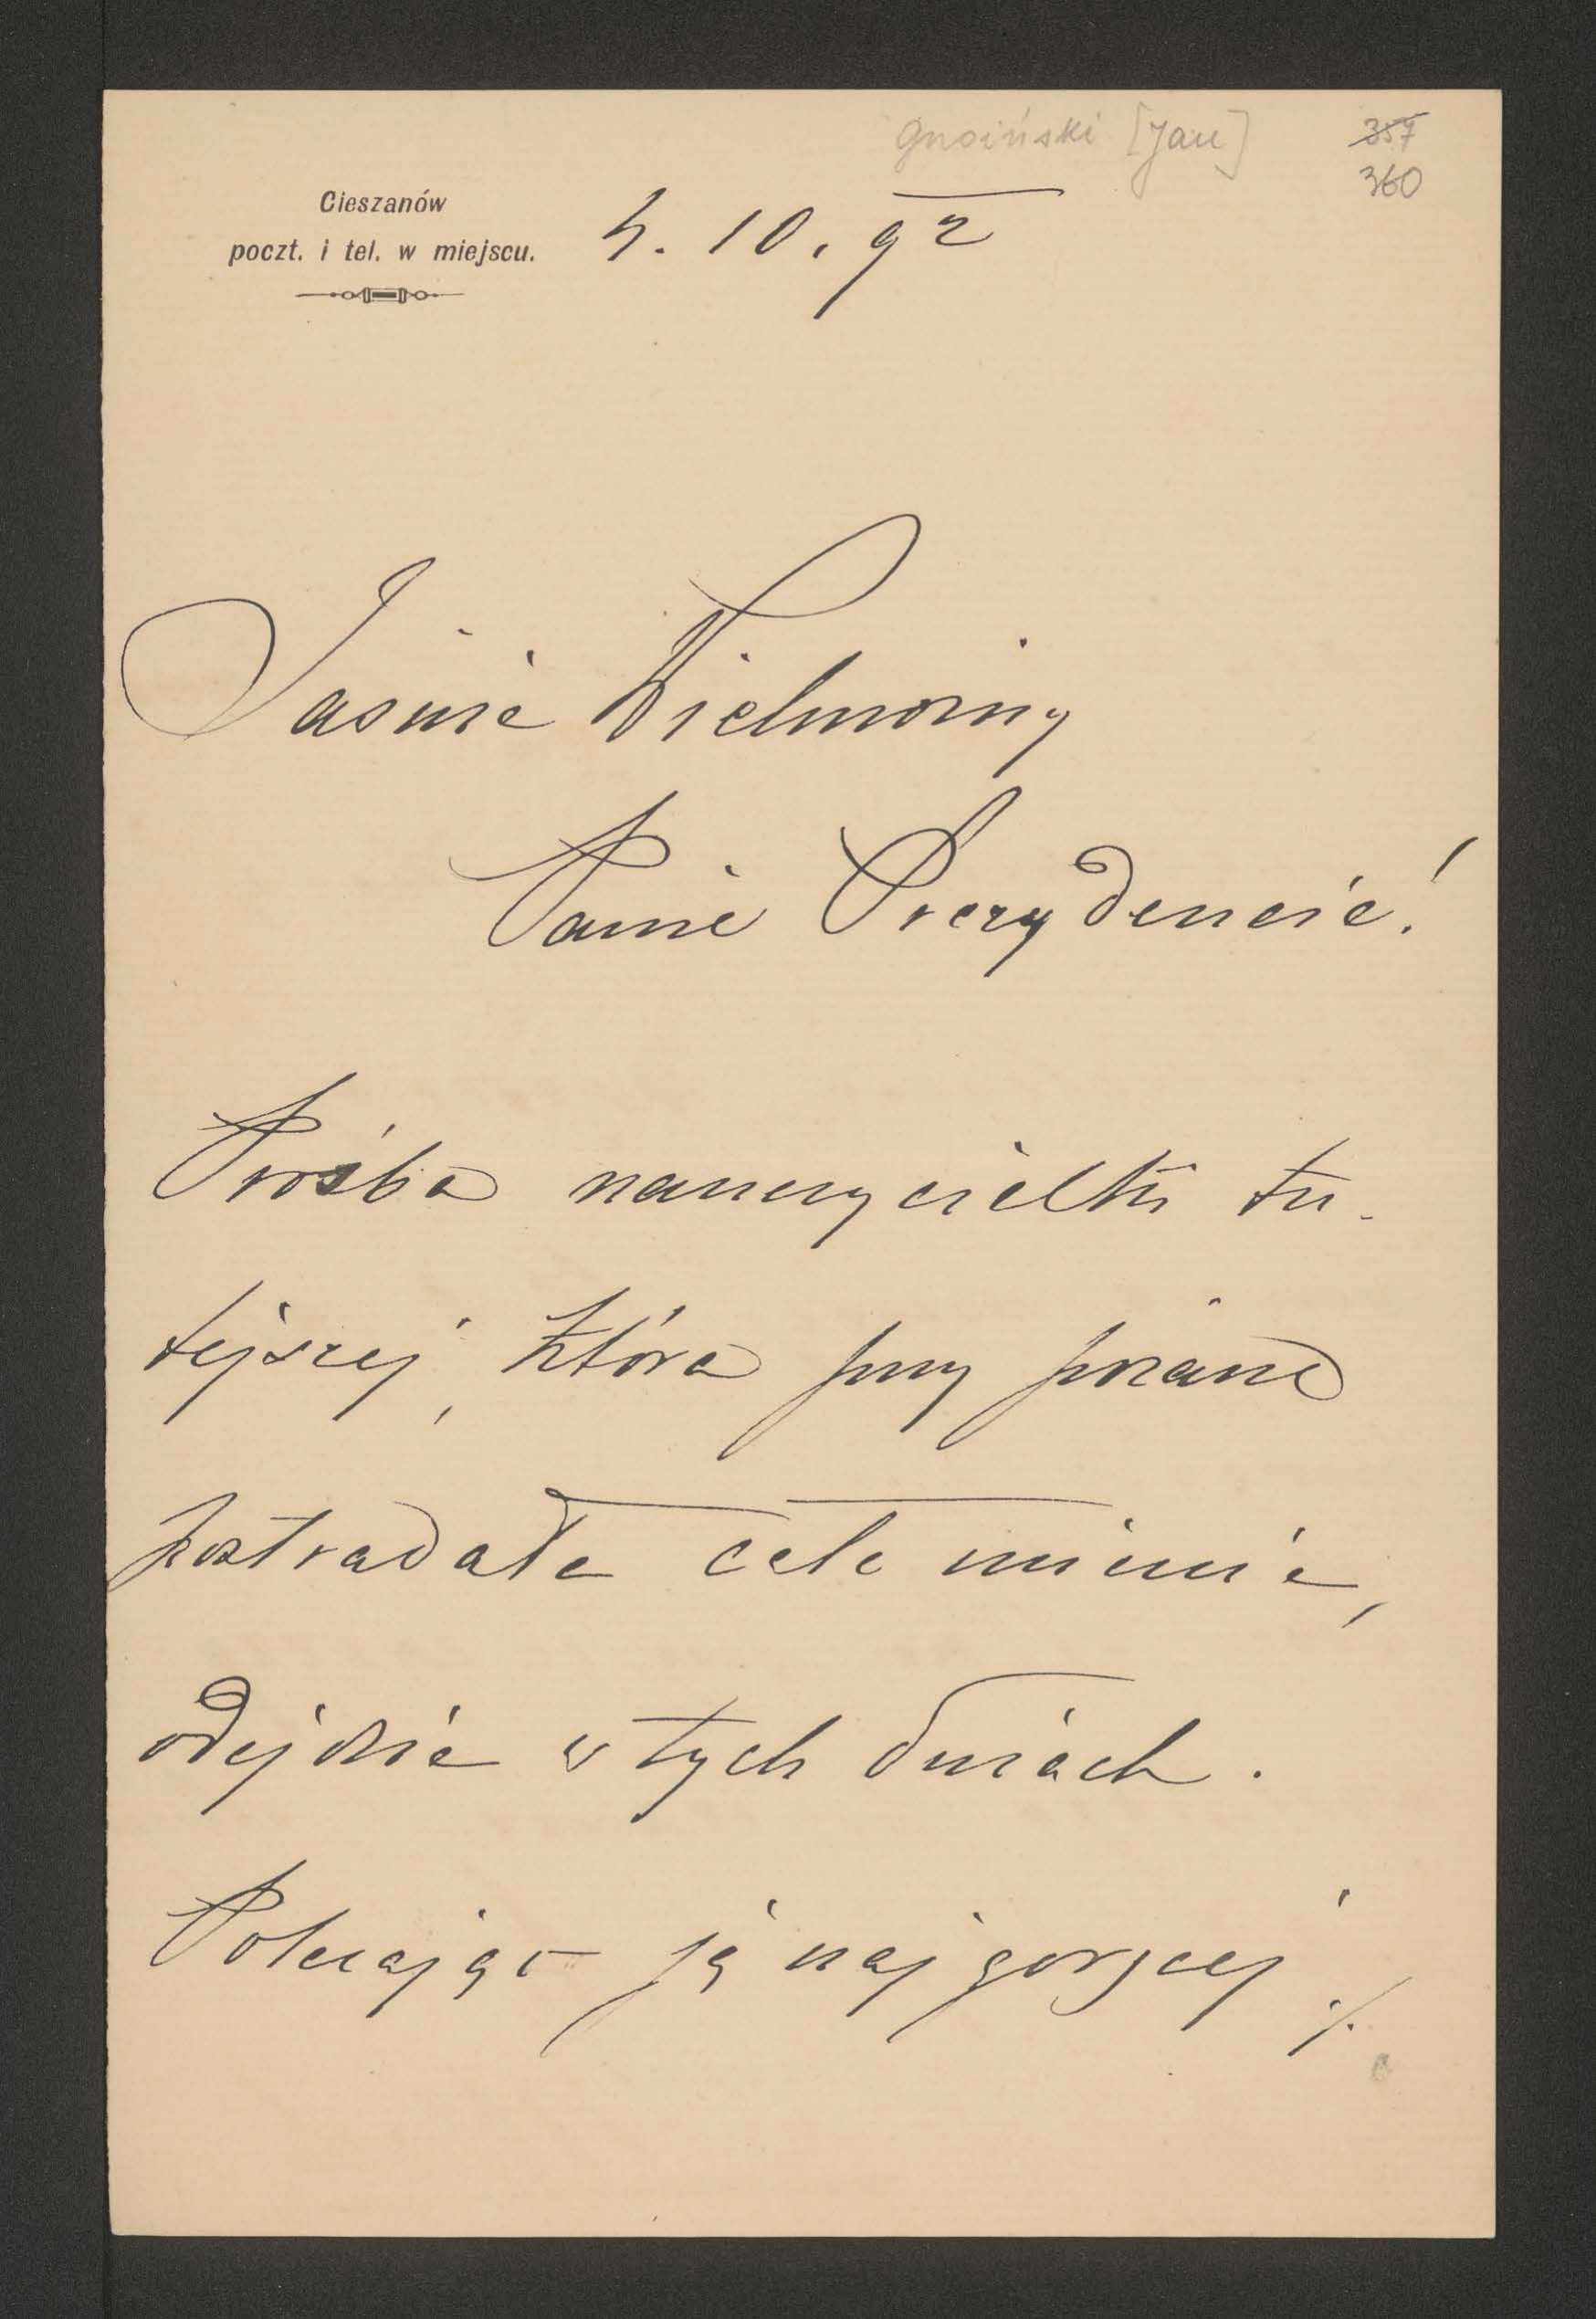 Gnoiński [Jan]
357
360
Cieszanów
poczt. i tel. w miejscu.
4. 10. 92
Jaśnie Wielmożny
Panie Prezydencie!
Prośba nauczycielki tu-
tejszej, która przy pożarze
postradała całe mienie,
odejdzie w tych dniach.
Polecając ją najgoręcej ./.